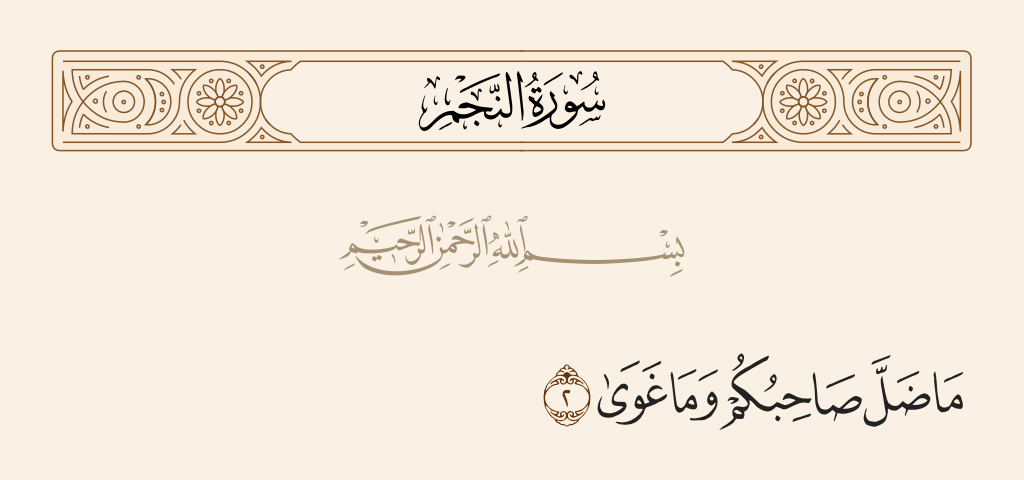 سُورَةُ النَّجْمِ
بِسْمِ ٱللَّهِ ٱلرَّحْمَٰنِ ٱلرَّحِيمِ
مَا ضَلَّ صَاحِبُكُمْ وَمَا غَوَىٰ ٢